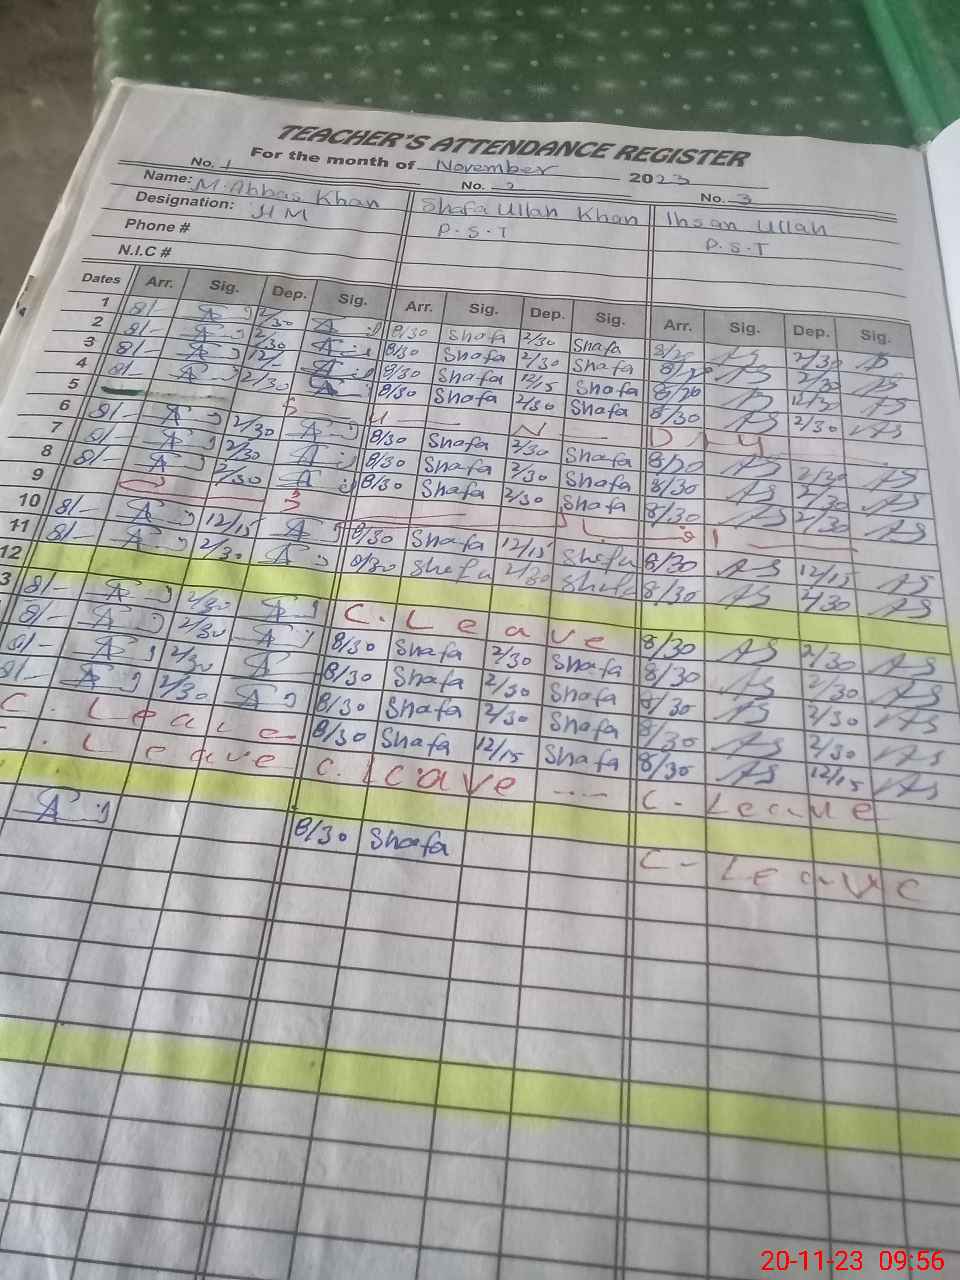 TEACHER'S ATTENDANCE REGISTER
For the month of November 2023
No. 1 No. 2 No. 3
Name: M. Abbas Khan Shafa Ullah Khan Ihsan Ullah
Designation: HM P.S.T P.S.T
Phone #
N.I.C #
Dates Arr. Sig. Dep. Sig. Arr. Sig. Dep. Sig. Arr. Sig. Dep. Sig.
1 8/- 2/30 8/30 Shafa 2/30 Shafa 2/30
2 8/- 2/30 8/30 Shafa 2/30 Shafa 2/30
3 8/- 12/- 8/30 Shafa 12/15 Shafa
4 8/- 2/30 8/30 Shafa 2/30 Shafa 8/30 2/30
5 S U N D A Y
6 8/- 2/30 8/30 Shafa 2/30 Shafa 8/30 2/30
7 8/- 2/30 8/30 Shafa 2/30 Shafa 8/30 2/30
8 8/- 2/30 8/30 Shafa 2/30 Shafa 8/30 2/30
9
10 8/- 12/15 8/30 Shafa 12/15 Shafa 8/30 12/15
11 8/- 2/30 8/30 Shafa 2/30 Shafa 8/30 2/30
12
3 8/- 2/30 C. Leave 8/30 2/30
8/- 2/30 8/30 Shafa 2/30 Shafa 8/30 2/30
8/- 2/30 8/30 Shafa 2/30 Shafa 8/30 2/30
8/- 2/30 8/30 Shafa 2/30 Shafa 8/30 2/30
C. Leave 8/30 Shafa 12/15 Shafa 8/30 12/15
C. Leave C. Leave C - Leave
8/30 Shafa C - Leave
20-11-23 09:56